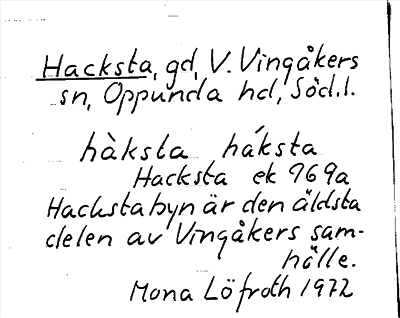 Hacksta, gd, V. Vingåkers
sn, Oppunda hd, Söd.l.
hàksta háksta
Hacksta ek 969a
Hackstabyn är den äldsta
delen av Vingåkers sam-
hälle.
Mona Löfroth 1972